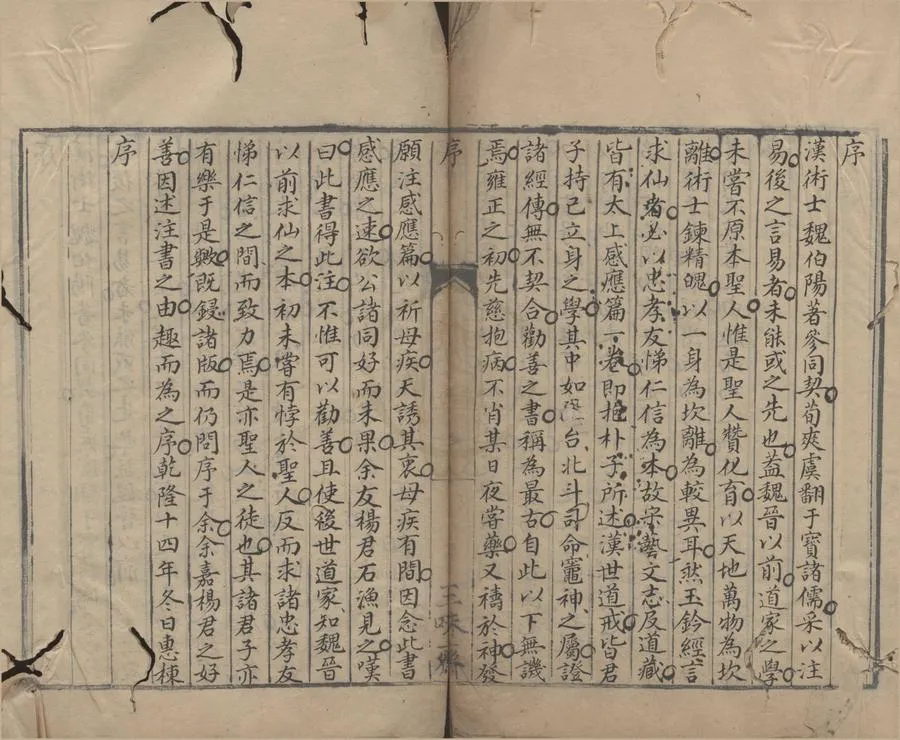 序
漢術士魏伯陽著參同契荀爽虞翻干寶諸儒采以注
易後之言易者未能或之先也蓋魏晉以前道家之學
未嘗不原本聖人惟是聖人贊化育以天地萬物為坎
離術士鍊精魄以一身為坎離為較異耳然玉鈐經言
求仙者必以忠孝友悌仁信為本故宋藝文志及道藏
皆有太上感應篇一卷即抱朴子所述漢世道戒皆君
子持己立身之學其中如台北斗司命竈神之屬證
諸經傳無不契合勸善之書稱為最古自此以下無譏
焉雍正之初先慈抱病不肖某日夜嘗藥又禱於神發
序
三味齋
願注感應篇以祈母疾天誘其衷母疾有間因念此書
感應之速欲公諸同好而未果余友楊君石漁見之嘆
曰此書得此注不惟可以勸善且使後世道家知魏晉
以前求仙之本初未嘗有悖於聖人反而求諸忠孝友
悌仁信之間而致力焉是亦聖人之徒也其諸君子亦
有樂于是歟既鋟諸版而仍問序于余余嘉楊君之好
善因述注書之由趣而為之序乾隆十四年冬日惠棟
序